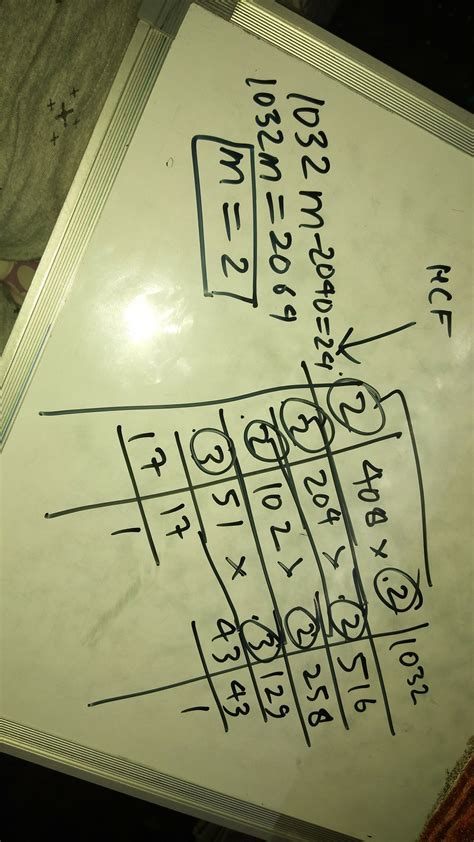 1032 m-2040=24
1032 m = 2064
m = 2
HCF
2 408 × 2 1032
2 204 × 2 516
2 102 × 2 258
3 51 × 3 129
17 17 43 43
1 1